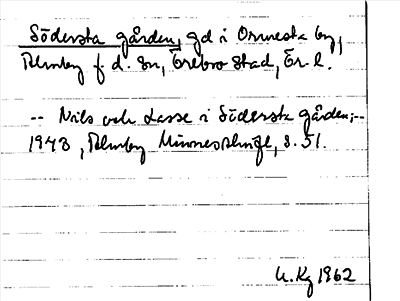 Södersta gården, gd i Ormesta by,
Almby f. d. sn, Örebro stad, Ör. l.
-- Nils och Lasse i Södersta gården; --
1943, Almby Minnesskrift, s. 51.
U. Kg 1962